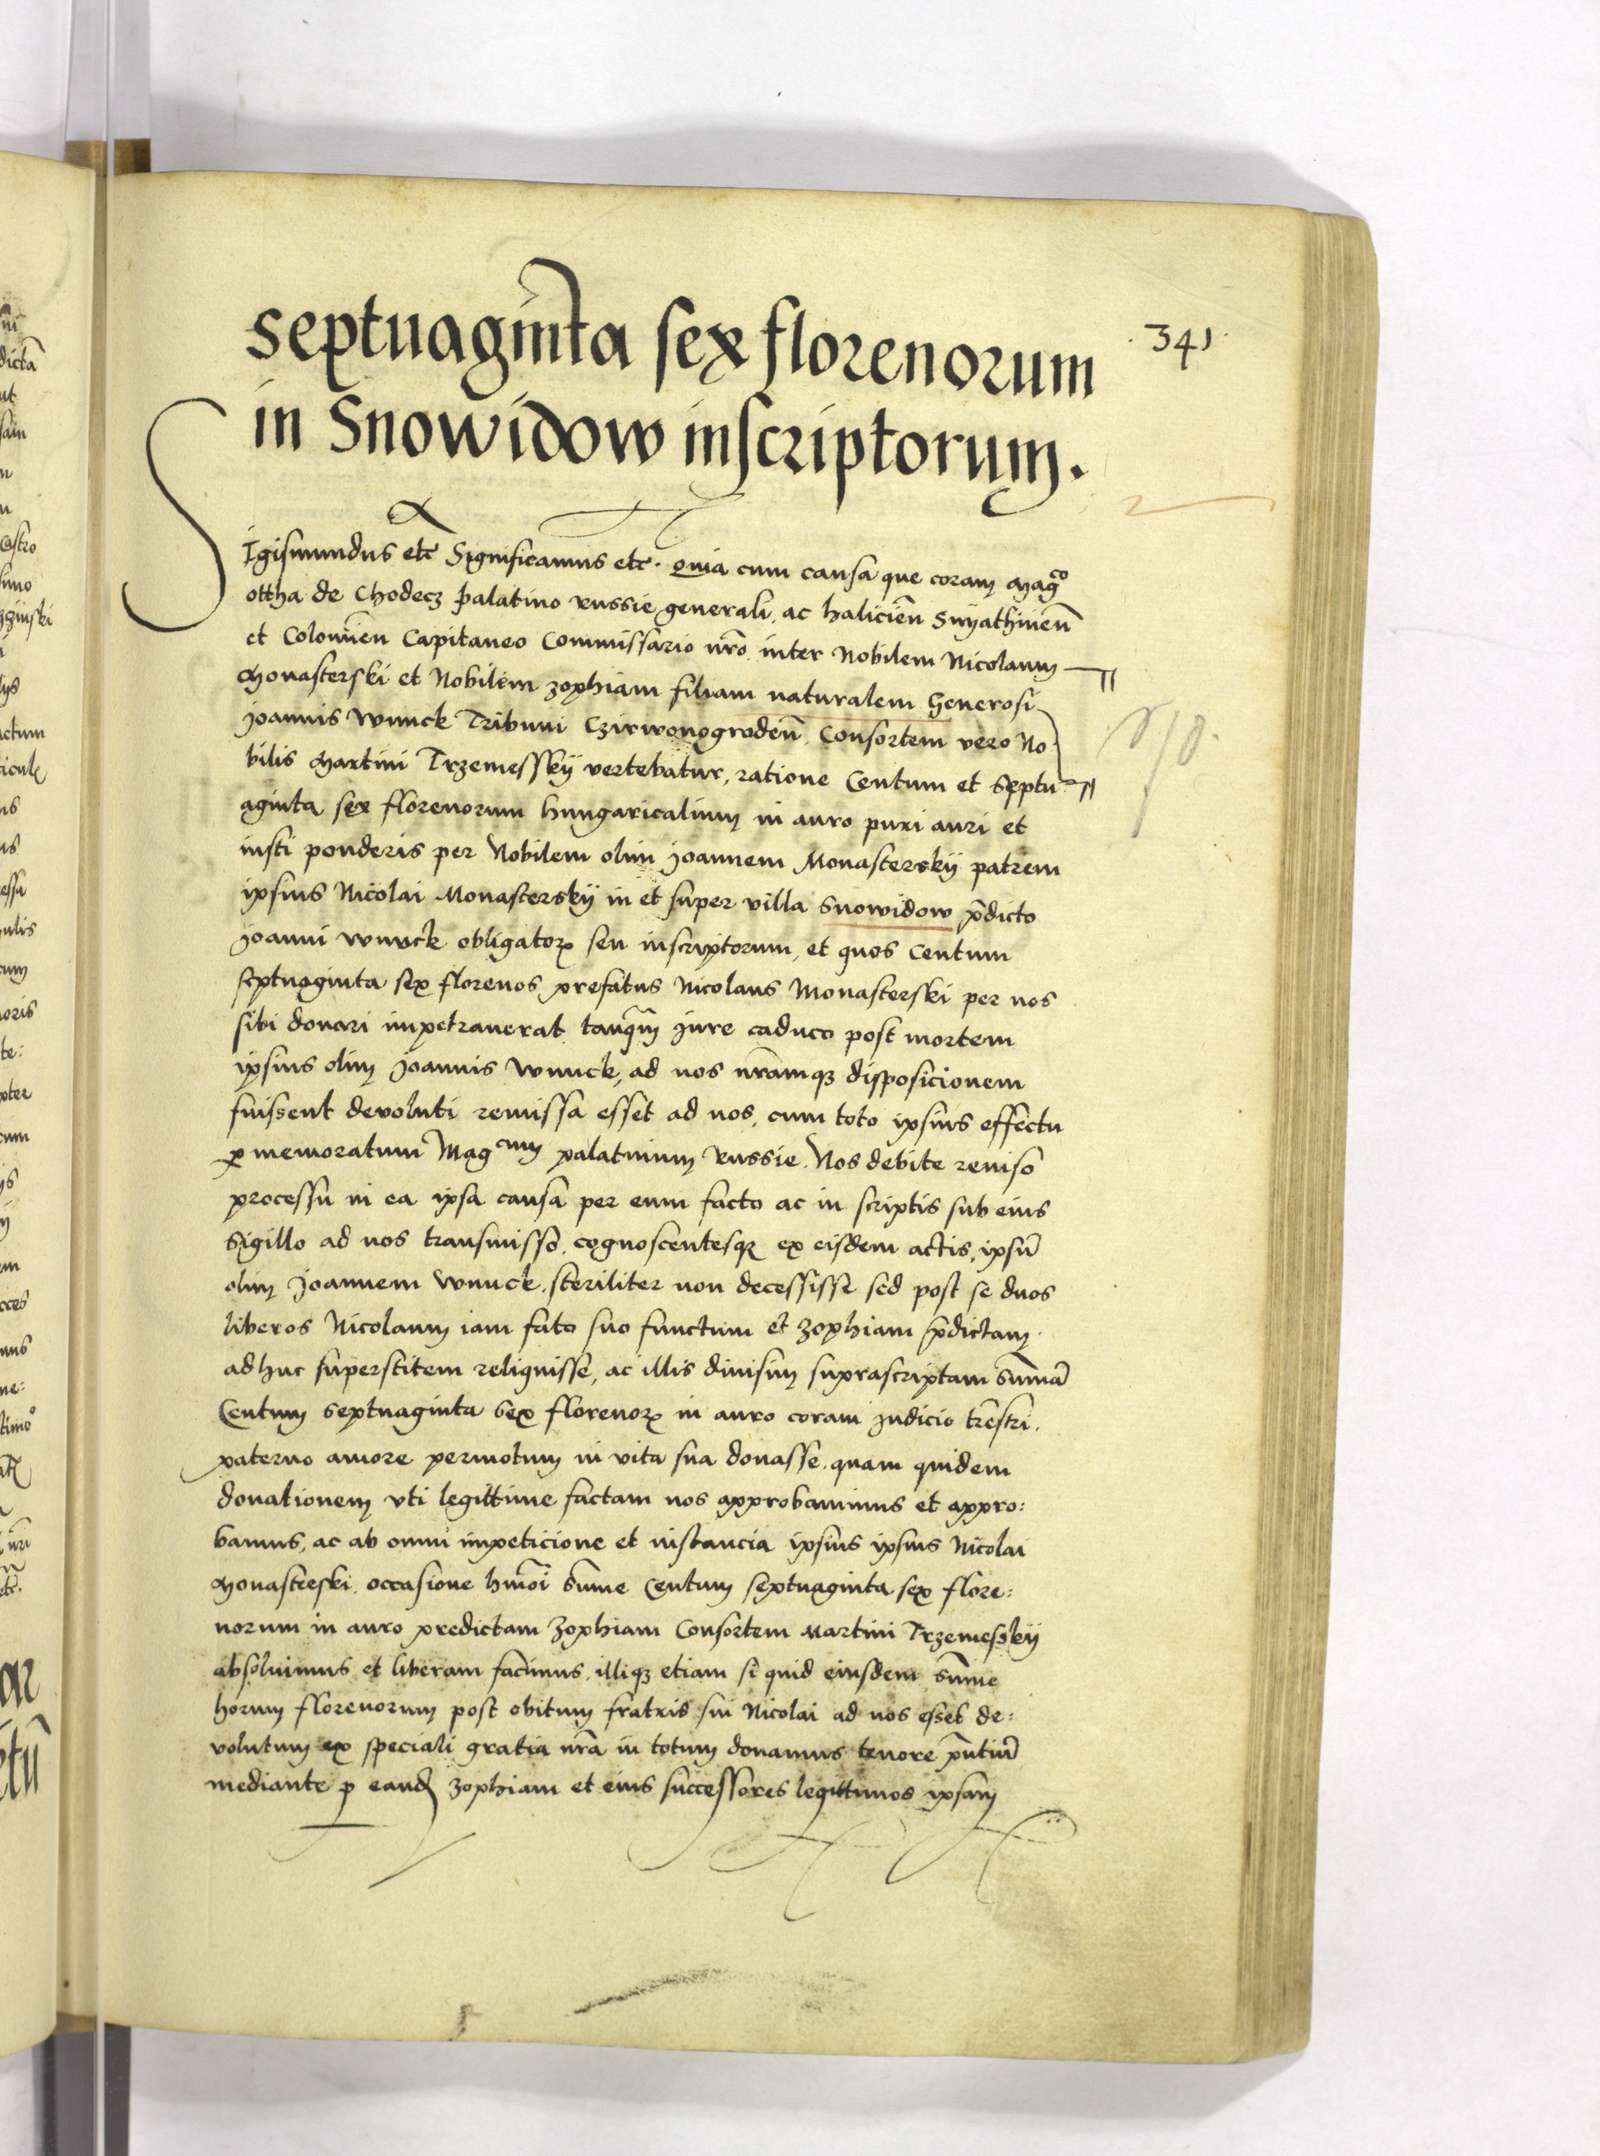 341
septuaginta sex florenorum
in Snowidow inscriptorum.
Sigismundus etc Significamus etc. Quia cum causa que coram Magco
ottha de Chodecz palatino Russie generali, ac halicien̄ Snyathinen̄
et Colomien̄ Capitaneo Commissario nr̄o inter Nobilem Nicolaum
Monasterski et Nobilem Zophiam filiam naturalem Generosi
Joannis Wnuck Tribuni Czirwonogroden̄ Consortem vero No
bilis Martini Trzemesskij vertebatur, ratione Centum et Septu
aginta sex florenorum hungaricalium in auro puri auri et
iusti ponderis per Nobilem olim Joannem Monasterskij patrem
ipsius Nicolai Monasterskij in et super villa Snowidow p̄dicto
Joanni Wnuck obligatorꝝ seu inscriptorum, et quos Centum
septuaginta sex florenos prefatus Nicolaus Monasterski per nos
sibi donari impetrauerat tanq̄m Jure caduco post mortem
ipsius olim Joannis Wnuck, ad nos nr̄amqꝫ disposicionem
fuissent devoluti remissa esset ad nos, cum toto ipsius effectu
ꝑ memoratum Magcum palatinum Russie. Nos debite reuiso
processu in ea ipsa causa per eum facto ac in scriptis sub eius
Sigillo ad nos transmisso, cognoscentesqꝫ ex eisdem actis, ipsū
olim Joannem Wnuck steriliter non decessisse sed post se duos
liberos Nicolaum iam fato suo functum et Zophiam p̄dictam
adhuc superstitem reliquisse, ac illis diuisim suprascriptam Sum̄ā
Centum septuaginta sex florenorꝝ in auro coram Judicio tr̄estri
paterno amore permotum in vita sua donasse, quam quidem
donationem vti legittime factam nos approbauimus et appro:
bamus, ac ab omni impeticione et instancia ipsius ipsius Nicolai
Monasteski occasione hm̄oi Sum̄e Centum septuaginta sex flore:
norum in auro predictam Zophiam Consortem Martini Trzemesskij
absoluimus et liberam facimus, illiqꝫ etiam si quid eiusdem Sum̄e
horum florenorum post obitum fratris sui Nicolai ad nos esset de:
volutum ex speciali gratia nr̄a in totum donamus tenore p̄ntiū
mediante ꝑ eand̄ Zophiam et eius successores legittimos ipsam